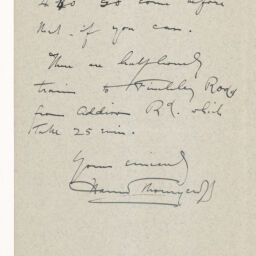 4 40 so come before
that - if you can.
There are half hourly
trains to Finchley Road
from Addison Rd. which
take 25 min.
Yours sincerely
Hamo Thornycroft